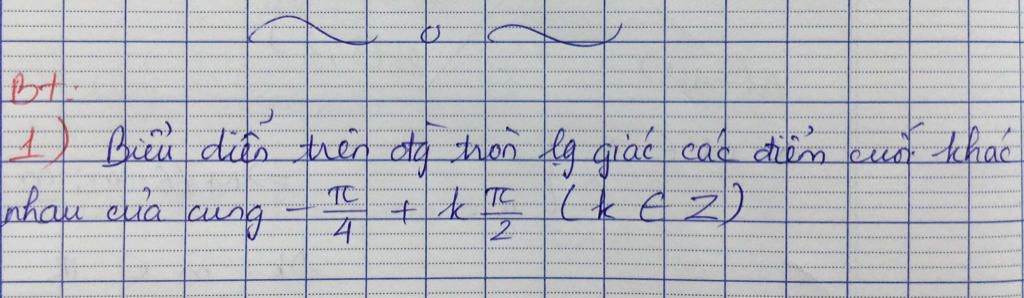 Bt:
1) Biểu diễn trên đg tròn lg giác các điểm cuối khác
nhau của cung -π/4 + k π/2 (k ∈ Z)